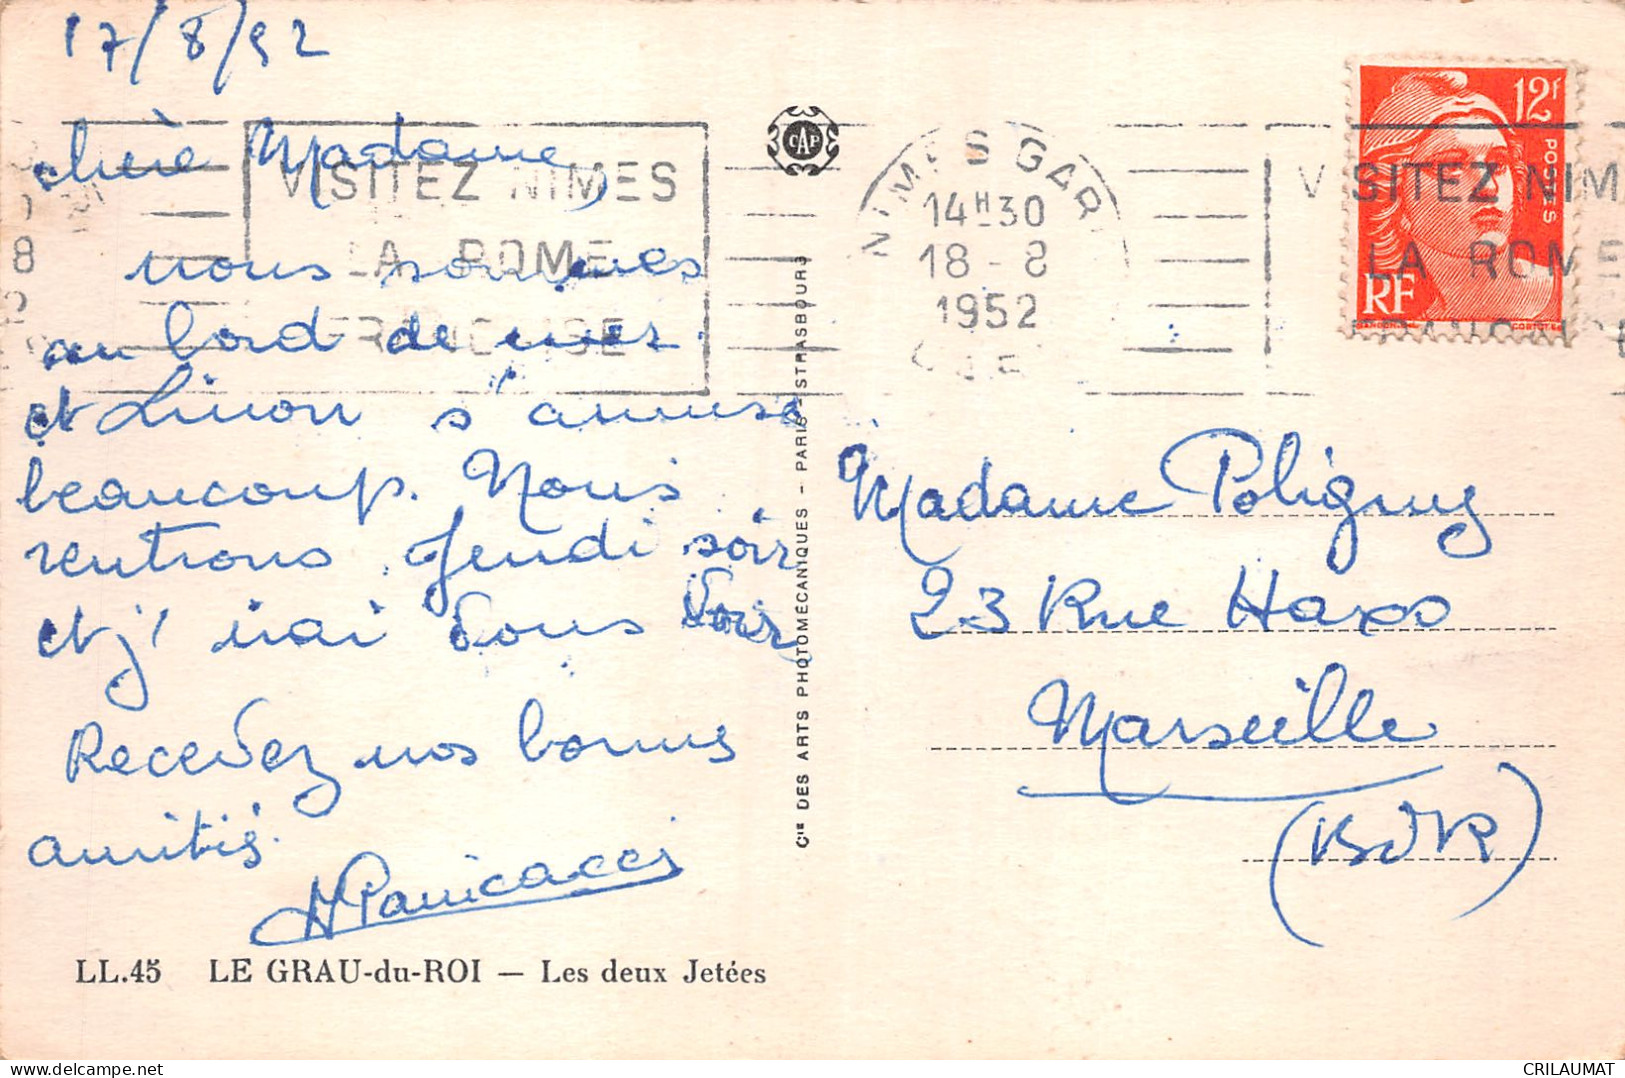 17/8/52
chère Madame,
nous sommes
au bord de mer.
et Simon s'amuse
beaucoup. Nous
rentrons Jeudi soir
et j'irai vous voir
Recevez nos bonnes
amitiés.
LL.45 LE GRAU-du-ROI — Les deux Jetées
VISITEZ NIMES
LA ROME
FRANCAISE
CAP
Cie DES ARTS PHOTOMÉCANIQUES - PARIS - STRASBOURG
NIMES GARE
14H30
18-8
1952
12F
POSTES
RF
VISITEZ NIM
LA ROME
Madame Poligny
23 Rue Haxo
Marseille
(BdR)
delcampe.net
CRILAUMAT